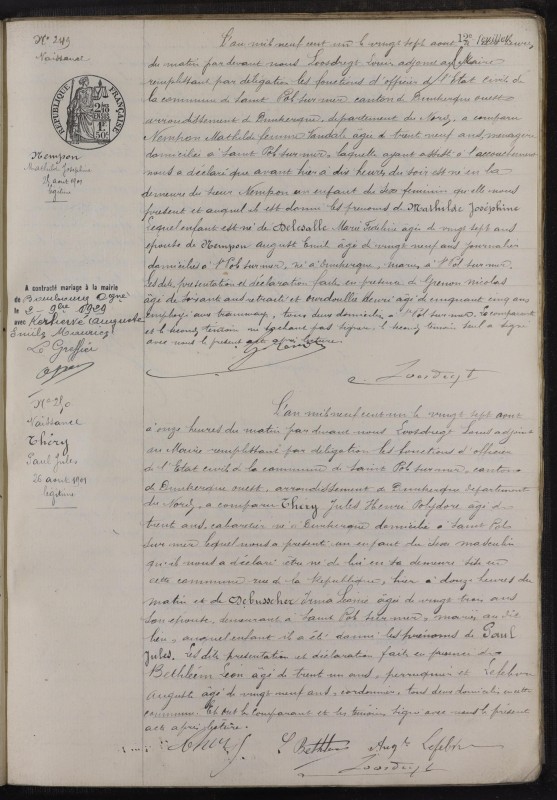 N° 249
Naissance
RÉPUBLIQUE FRANÇAISE
Nempon
Mathilde Joséphine
25 août 1901
légitime
L'an mil neuf cent un le vingt sept août à dix heures
du matin par devant nous Loosdregt Louis adjoint au Maire
remplissant par délégation les fonctions d'officier de l'État civil de
la commune de Saint Pol sur mer canton de Dunkerque ouest
arrondissement de Dunkerque, département du Nord, a comparu
Nempon Mathilde femme Vandale âgée de trente neuf ans, ménagère
domiciliée à Saint Pol sur mer, laquelle ayant assisté à l'accouchement
nous a déclaré que avant hier à dix heures du soir est né en la
demeure du sieur Nempon un enfant du sexe féminin qu'elle nous
présente et auquel il est donné les prénoms de Mathilde Joséphine
lequel enfant est né de Delesalle Marie âgée de vingt sept ans
épouse de Nempon Auguste Emile âgé de vingt neuf ans journalier
domiciliés à St Pol sur mer, né à Dunkerque, mariés à St Pol sur mer.
Les dites présentation et déclaration faites en présence de Nicolas
âgé de soixante ans retraité et Henri âgé de cinquante cinq ans
employé aux tramways, tous deux domiciliés à St Pol sur mer. Le comparant
et le témoin ne sachant pas signer, le témoin seul a signé
avec nous le présent acte après lecture.
Loosdregt
A contracté mariage à la mairie
de
le 2 1929
avec Auguste
Emile Maurice
Le Greffier
N° 250
Naissance
Théry
Paul Jules
26 août 1901
légitime
L'an mil neuf cent un le vingt sept août
à onze heures du matin par devant nous Loosdregt Louis adjoint
au Maire remplissant par délégation les fonctions d'officier
de l'État civil de la commune de Saint Pol sur mer, canton
de Dunkerque ouest, arrondissement de Dunkerque département
du Nord, a comparu Théry Jules Henri Polydore âgé de
trente ans, cabaretier né à Dunkerque domicilié à Saint Pol
sur mer lequel nous a présenté un enfant du sexe masculin
qu'il nous a déclaré être né de lui en sa demeure sise en
cette commune rue de la République, hier à douze heures du
matin et de Debusscher Irma Louise âgée de vingt trois ans
son épouse, demeurant à Saint Pol sur mer, mariés au dit
lieu, auquel enfant il a été donné les prénoms de Paul
Jules. Les dites présentation et déclaration faites en présence de
Bethléem Léon âgé de trente un ans, perruquier et Lefebvre
Auguste âgé de vingt neuf ans, cordonnier, tous deux domiciliés en cette
commune. Et ont le comparant et les témoins signé avec nous le présent
acte après lecture.
Théry J.
L Bethléem Aug. Lefebvre
Loosdregt